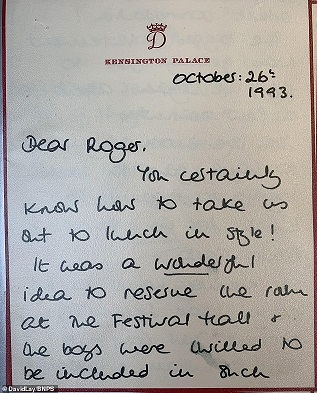 D
KENSINGTON PALACE
October: 26th
1993.
Dear Roger,
You certainly
know how to take us
out to lunch in style!
It was a wonderful
idea to reserve the room
at the Festival Hall &
the boys were thrilled to
be included in such
© DavidLay/BNPS